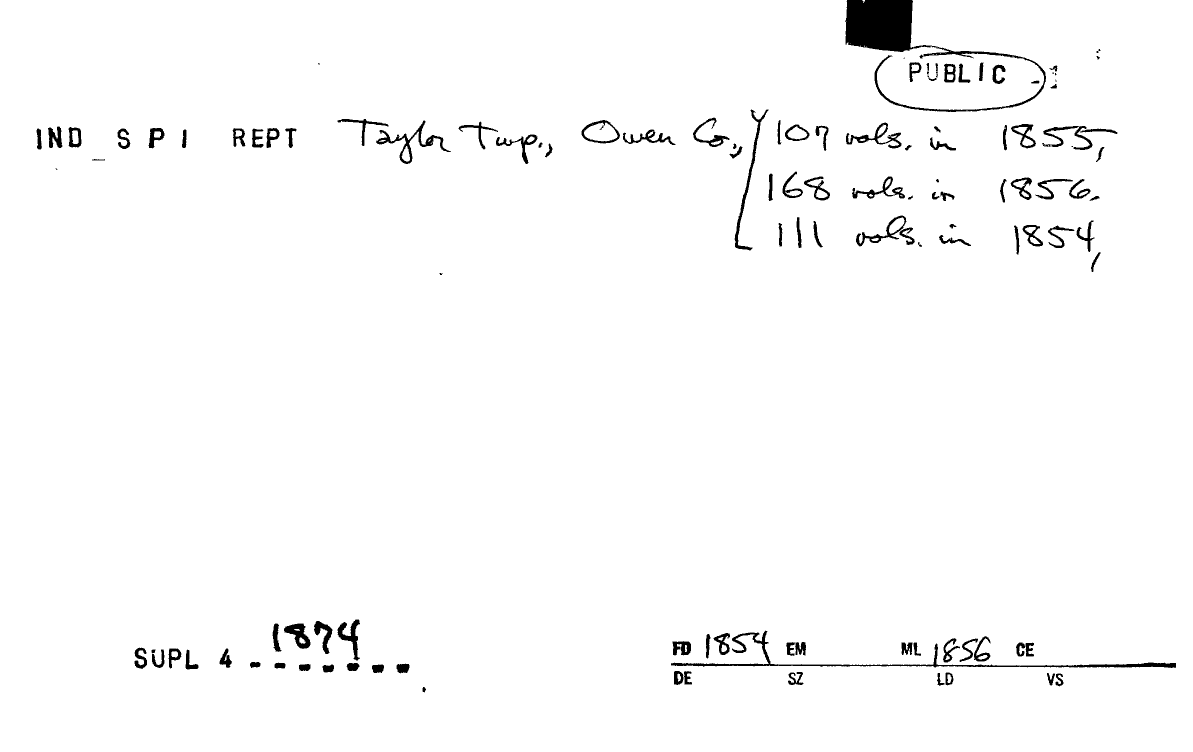 PUBLIC -1
IND S P I REPT Taylor Twp., Owen Co., 107 vols. in 1855,
168 vols. in 1856.
111 vols. in 1854,
1874
SUPL 4 -------
FD 1854 EM ML 1856 CE
DE SZ LD VS